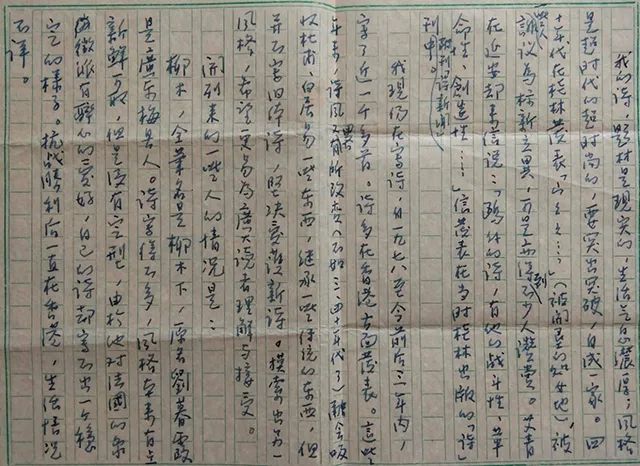 我的诗，题材是现实的，生活气息浓厚；风格
是超时代的超时尚的，要突出突破，自成一家。四
十年代在桂林发表「……」（被开垦的处女地）被一些人
议为标新立异，可是亦得到少人激赏。艾青
在延安却来信说：「鸥外的诗，有他的战斗性、革
命性、创造性……」信发表在当时桂林出版的「诗」
刊中。（附刊诗新闻）
我现仍在写诗，自一九七八至今前后三年内，
写了近一千多首。诗多在香港方面发表。这些
年来，诗风又略有所改变（不如三四十年代了）融会吸
收杜甫、白居易一些东西，继承一些传统的东西，但
并不写旧体诗，坚决爱护新诗。摸索出另一
风格，希望更易为广大读者理解与接受。
开列来的一些人的情况是：
柳木，全笔名是柳木下，原名劉慕霞
是广东梅县人。诗写得不多，风格本来有点
新鲜可取，但是没有定型，由于他对法国的象
征派有野心的爱好，自己的诗却写不出一个稳
定的样子。抗战胜利后一直在香港，生活情况
不详。